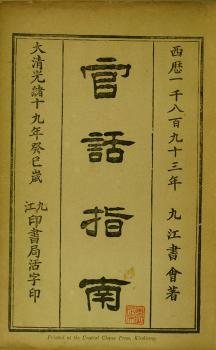 西歷一千八百九十三年 九江書會著
官話指南
大清光緒十九年癸巳歲 九江印書局活字印
Printed at the Central China Press, Kiukiang.